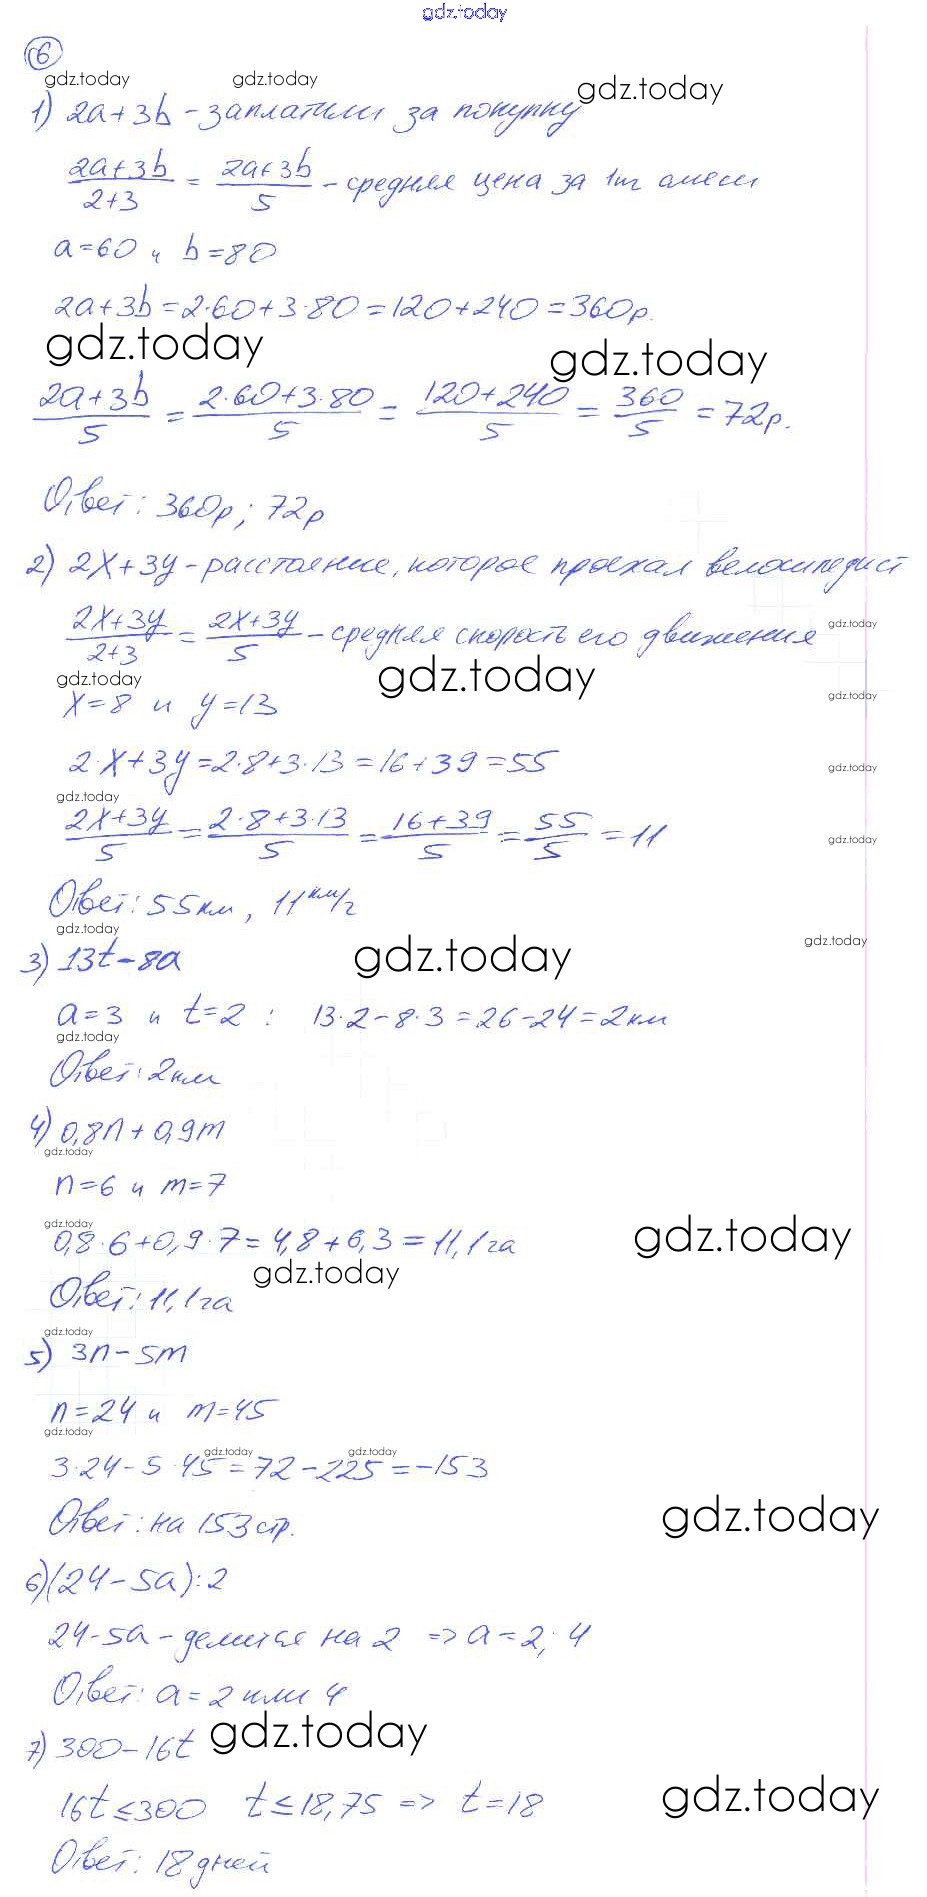 gdz.today
6
gdz.today gdz.today gdz.today
1) 2a+3b - заплатили за покупку
(2a+3b)/(2+3) = (2a+3b)/5 - средняя цена за 1кг смеси
a=60 и b=80
2a+3b=2·60+3·80=120+240=360р.
gdz.today gdz.today
(2a+3b)/5 = (2·60+3·80)/5 = (120+240)/5 = 360/5 = 72р.
Ответ: 360р; 72р
2) 2x+3y - расстояние, которое проехал велосипедист
(2x+3y)/(2+3) = (2x+3y)/5 - средняя скорость его движения
gdz.today
gdz.today gdz.today
gdz.today
x=8 и y=13
2·x+3y=2·8+3·13=16+39=55
gdz.today
gdz.today
(2x+3y)/5 = (2·8+3·13)/5 = (16+39)/5 = 55/5 = 11
gdz.today
Ответ: 55км, 11 км/ч
gdz.today gdz.today gdz.today
3) 13t-8a
a=3 и t=2 : 13·2-8·3=26-24=2км
gdz.today
Ответ: 2км
4) 0,8n+0,9m
gdz.today
n=6 и m=7
gdz.today gdz.today
0,8·6+0,9·7=4,8+6,3=11,1га
gdz.today
Ответ: 11,1га
gdz.today
5) 3n-5m
n=24 и m=45
gdz.today
gdz.today gdz.today
3·24-5·45=72-225=-153
gdz.today
Ответ: на 153стр.
6) (24-5a):2
24-5a - делится на 2 => a=2; 4
Ответ: a=2 или 4
gdz.today
7) 300-16t
16t≤300 t≤18,75 => t=18
gdz.today
Ответ: 18 дней